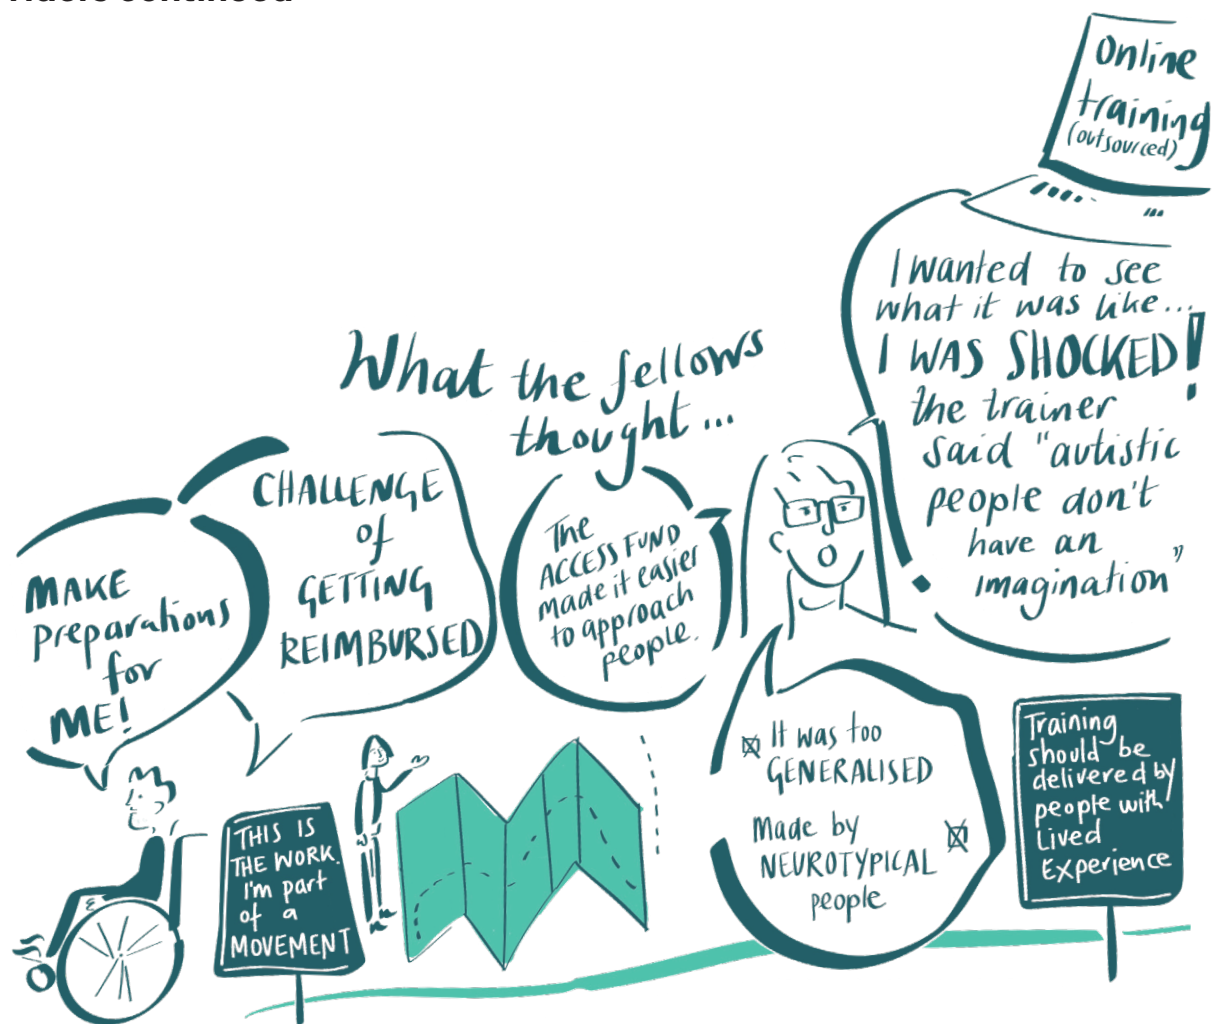 continued
Online
training
(outsourced)
I wanted to see
what it was like...
I WAS SHOCKED!
the trainer
said "autistic
people don't
have an
imagination"
What the fellows
thought...
MAKE
preparations
for
ME!
CHALLENGE
of
GETTING
REIMBURSED
The
ACCESS FUND
made it easier
to approach
people.
It was too
GENERALISED
Made by
NEUROTYPICAL
people
THIS IS
THE WORK.
I'm part
of a
MOVEMENT
Training
should be
delivered by
people with
Lived
Experience